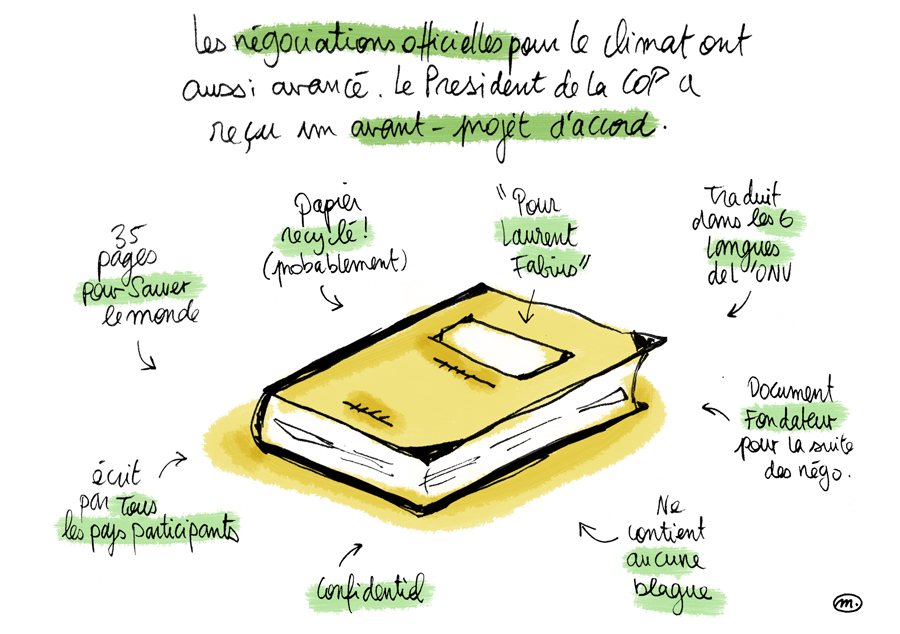 Les négociations officielles pour le climat ont
aussi avancé. Le President de la COP a
reçu un avant-projet d'accord.
35
pages
pour sauver
le monde
papier
recyclé!
(probablement)
"Pour
Laurent
Fabius"
Traduit
dans les 6
langues
de l'ONU
Document
Fondateur
pour la suite
des négo.
écrit
par Tous
les pays participants
Confidentiel
Ne
contient
aucune
blague
m.